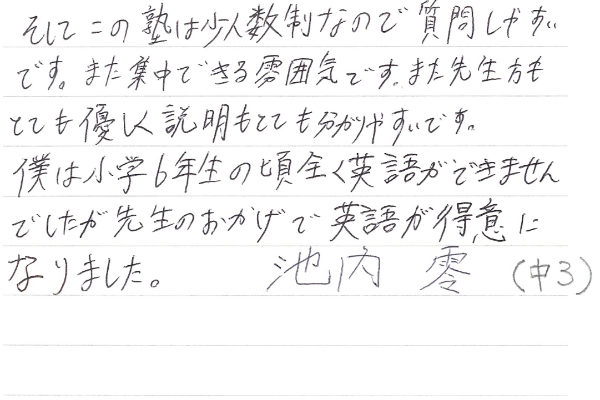 そしてこの塾は少人数制なので質問しやすい
です。また集中できる雰囲気です。また先生方も
とても優しく説明もとても分かりやすいです。
僕は小学6年生の頃全く英語ができません
でしたが先生のおかげで英語が得意に
なりました。 池内 零 (中3)